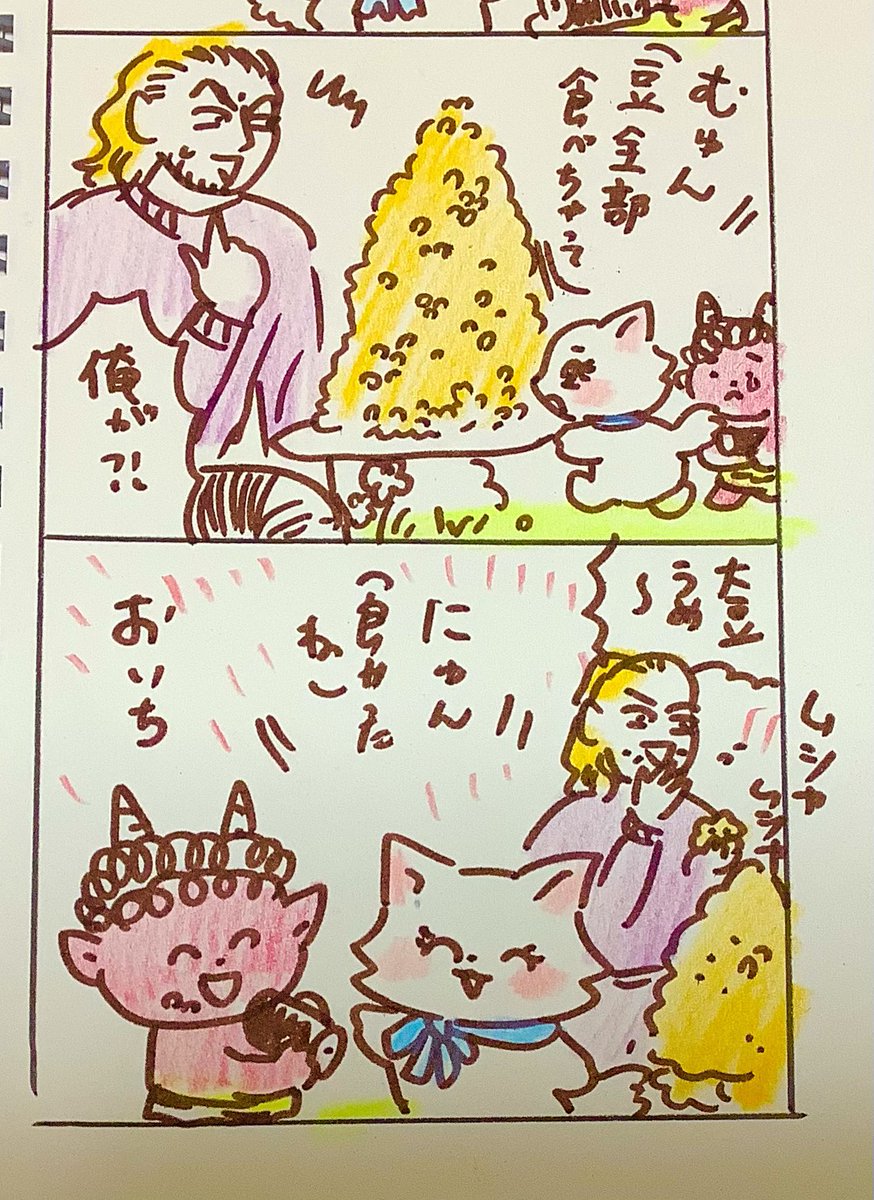 むゅん
(豆全部
食べちゃって)
俺が?!
大豆
うめ
〜
ムシャ
ムシャ
にゅん
(食れた
ね)
おいち